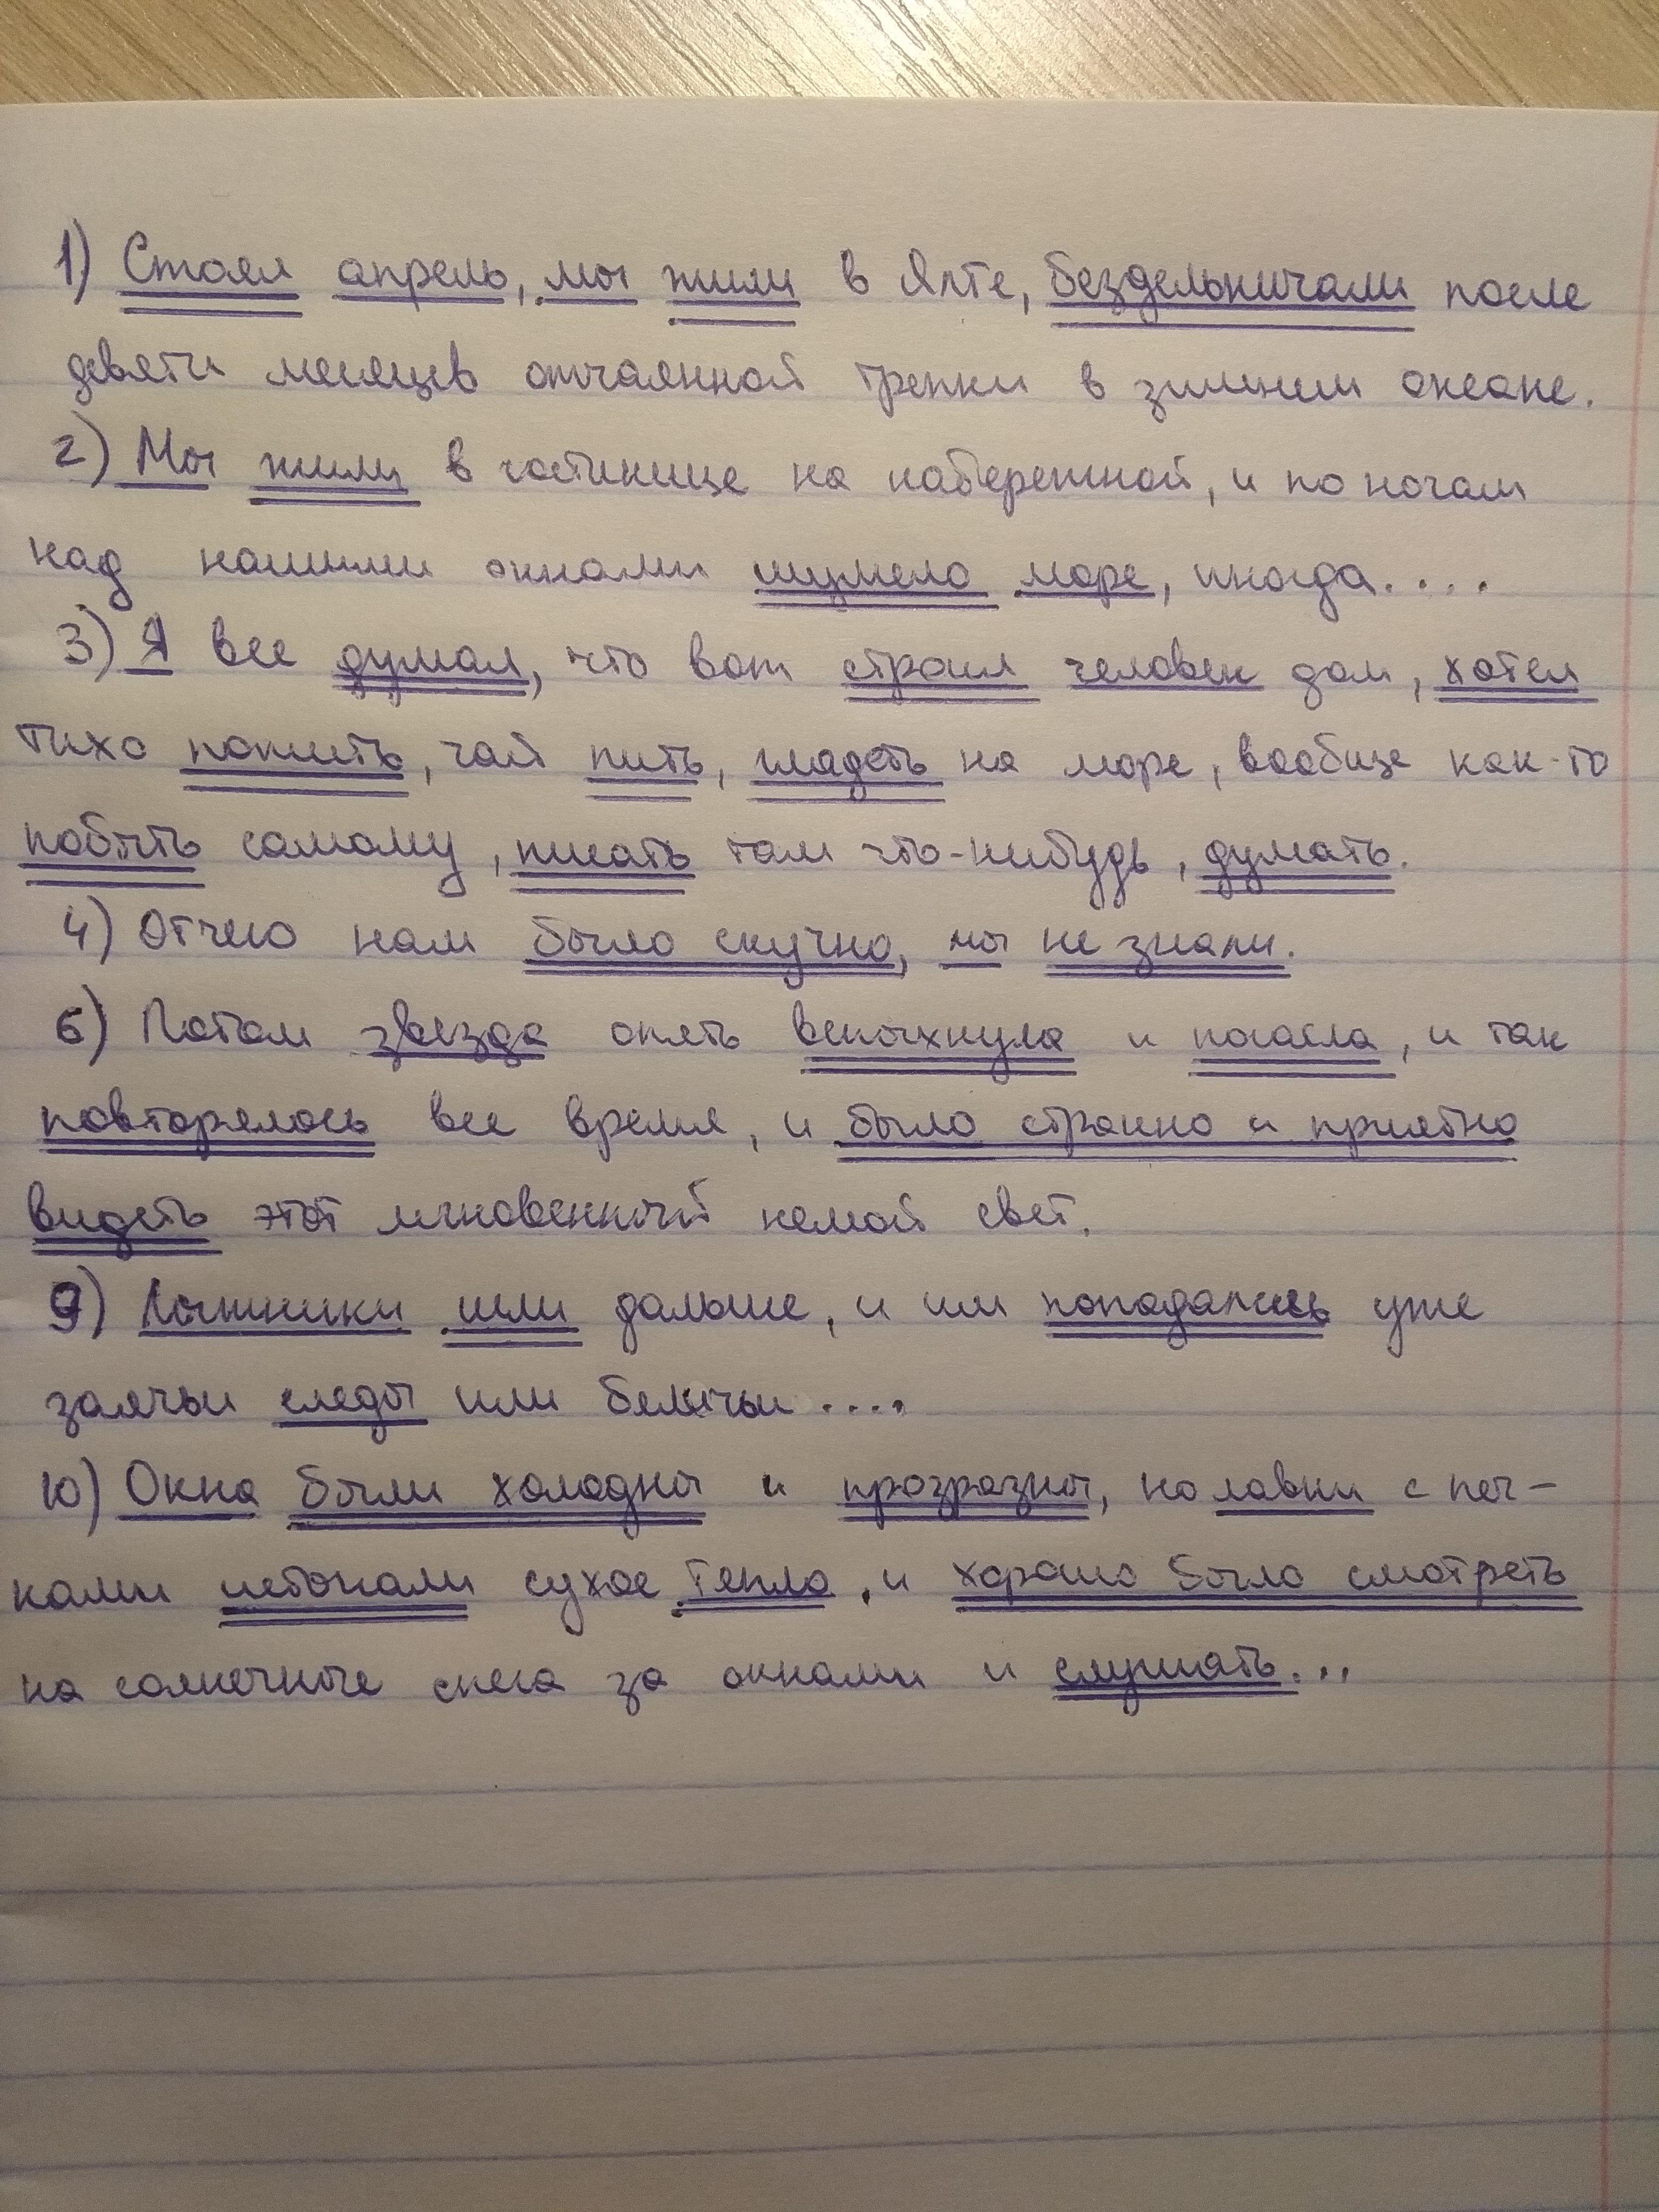 1) Стоял апрель, мы жили в Ялте, бездельничали после
девяти месяцев отчаянной трепки в зимнем океане.
2) Мы жили в гостинице на набережной, и по ночам
над нашими окнами шумело море, иногда....
3) Я все думал, что вот строил человек дом, хотел
тихо пожить, чай пить, глядеть на море, вообще как-то
побыть самому, писать там что-нибудь, думать.
4) Отчего нам было скучно, мы не знали.
6) Потом звезда опять вспыхнула и погасла, и так
повторялось все время, и было странно и приятно
видеть этот мгновенный немой свет.
9) Лыжники шли дальше, и им попадались уже
заячьи следы или беличьи....
10) Окна были холодны и прозрачны, но лавки с печ-
ками источали сухое тепло, и хорошо было смотреть
на солнечные снега за окнами и слушать...